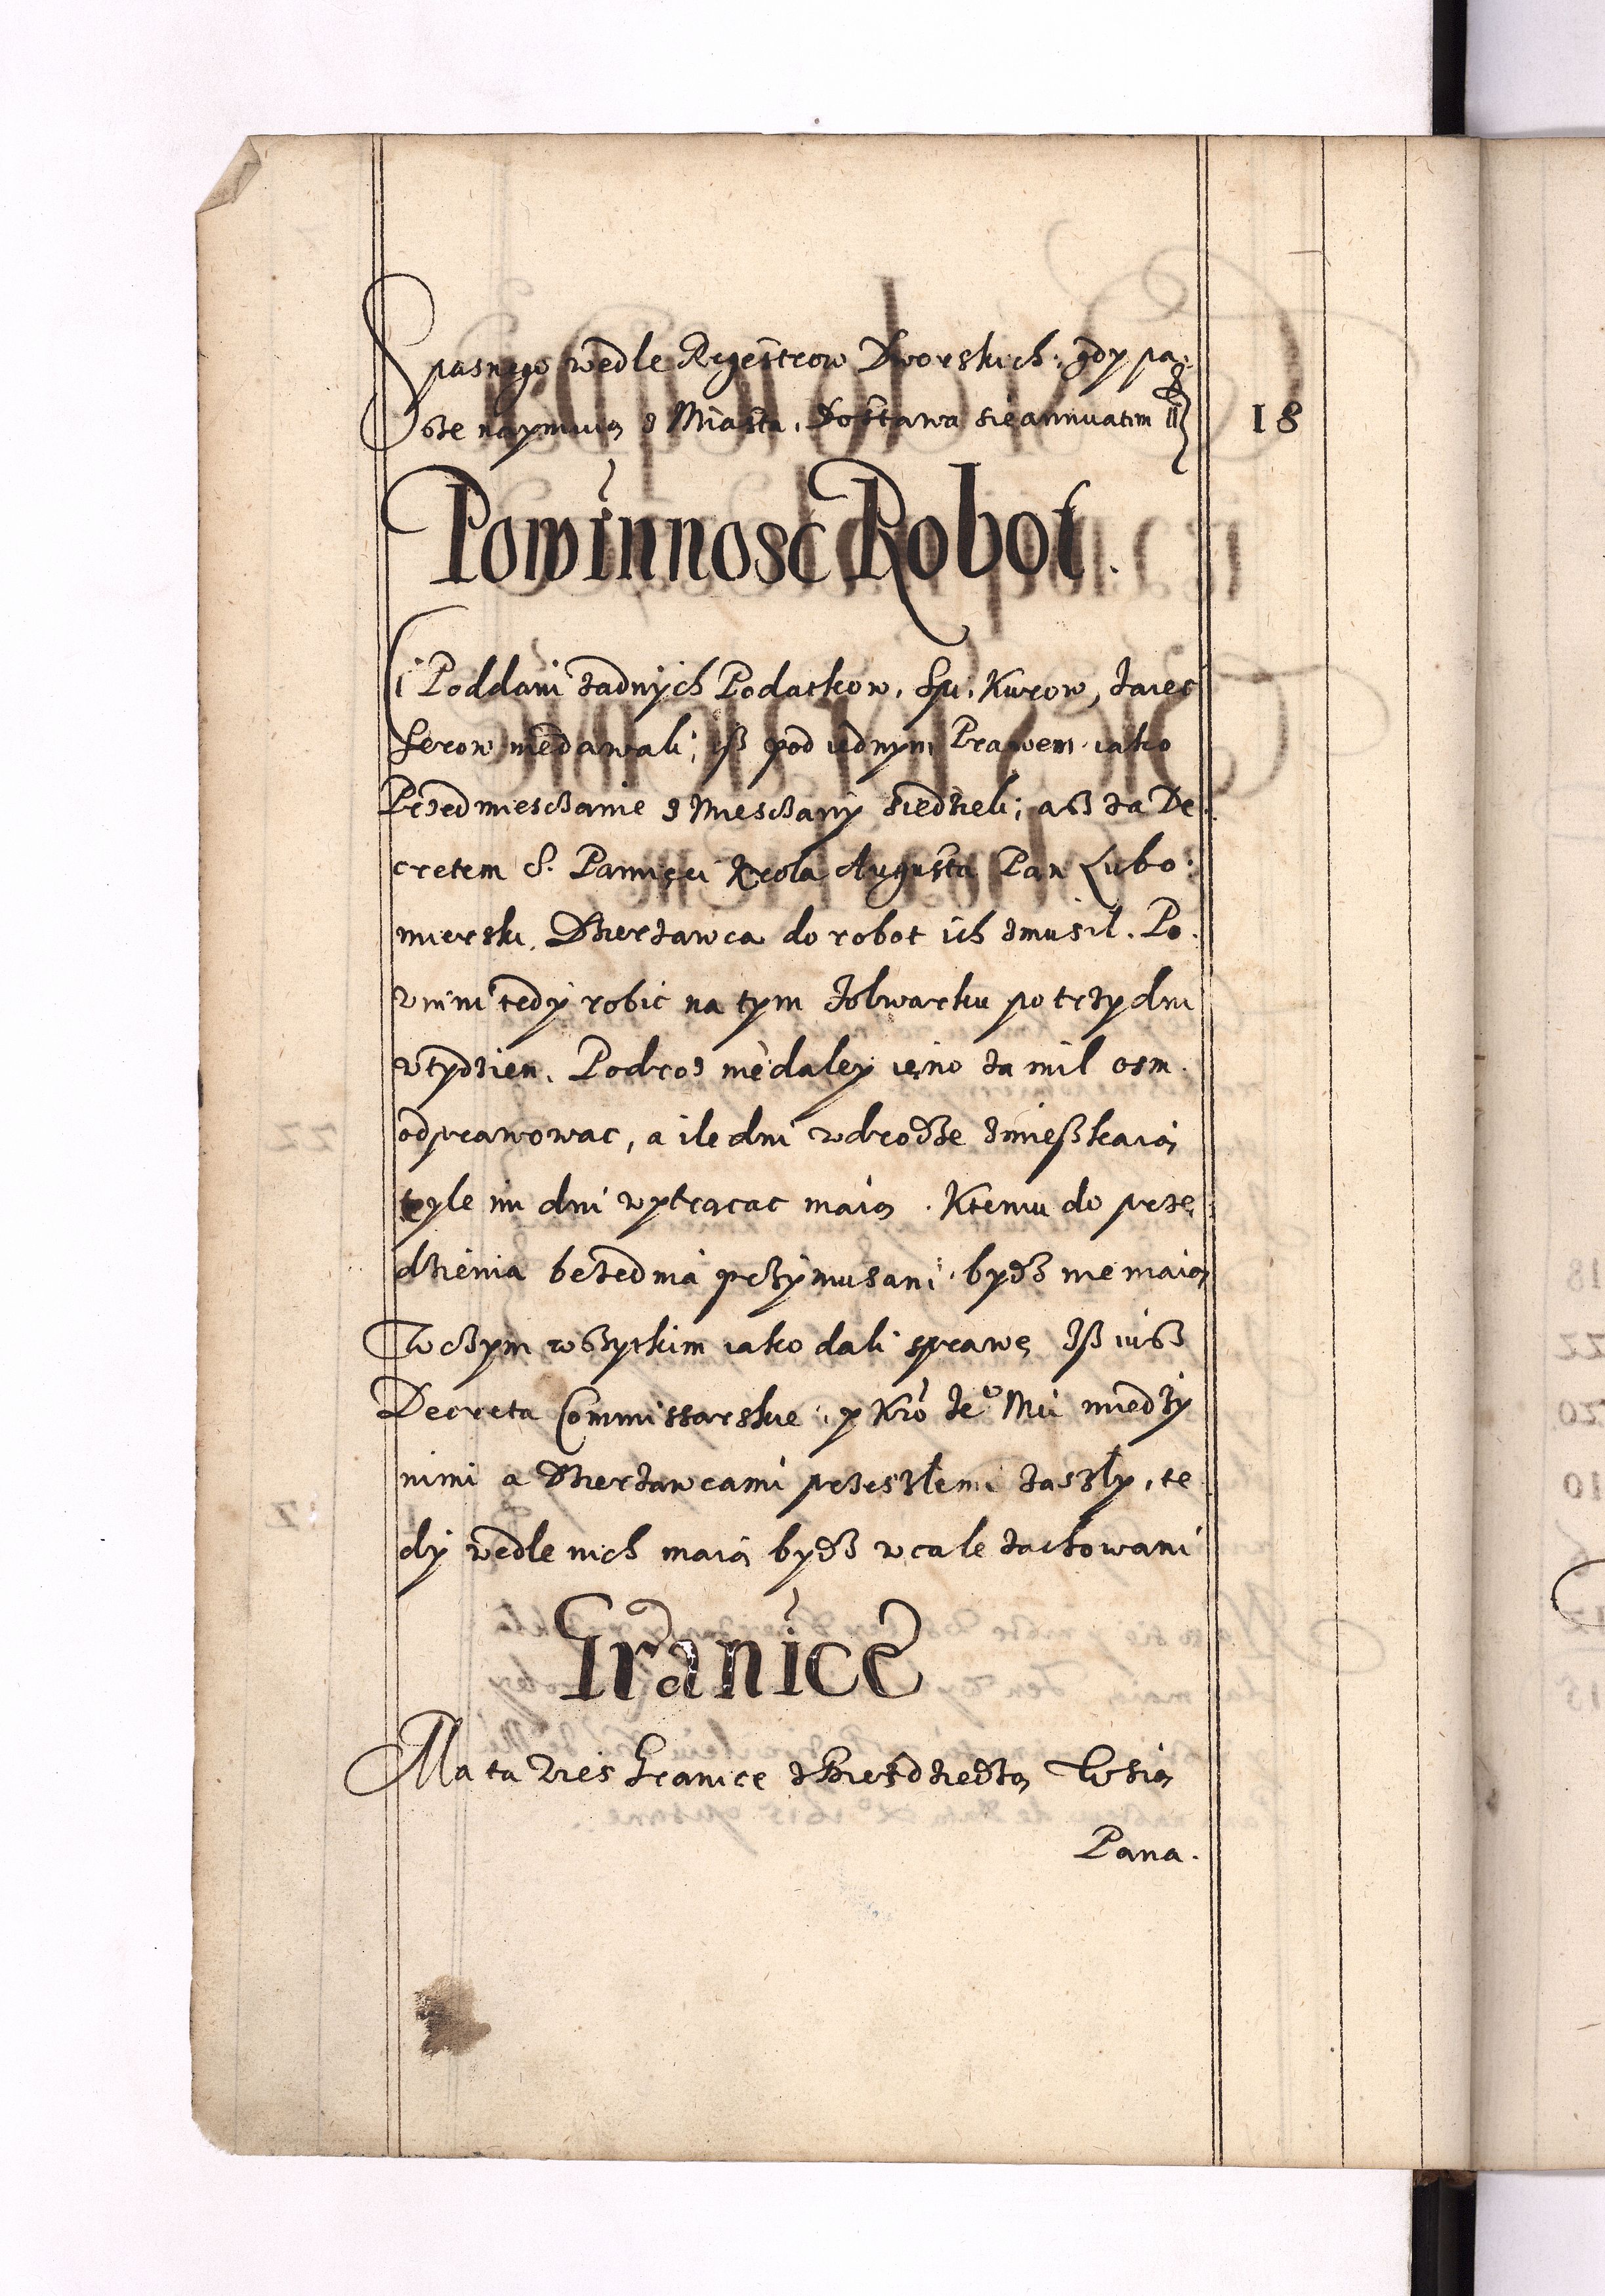 Spasnego wedle Regestrow Dworskich: gdy pa:
sze naymuią z Miasta. Dostawa sie annuatim fl
18
Powinnosc Robot.
Ci Poddani zadnych Podatkow. Kurow, Jaiec
Serow niedawali; isz pod iednym Prawem iako
Przedmiesczanie z Miesczany siedzieli; asz za De:
cretem S. Pamięci Krola Augusta Pan Lubo:
mierski. Dzierzawca do robot ich zmusil. Po:
winni tedy robic na tym Folwarku po trzy dni
w tydzien. Podroz niedaley ieno za mil osm.
odprawowac, a ile dni wdrodze zmieszkaią
tyle im dni wytrącac maią. Ktemu do przę:
dzienia bezednia przymusani bydz nie maią
W czym wszytkim iako dali sprawę Isz iusz
Decreta Commissarskie: y Kro Je⁰ Mci miedzy
nimi a Dzierzawcami przeszlemi zaszly, te
dy wedle nich maią bydz wcale zachowani
Granice
Ma ta Wies Granice z Wsią
Pana.